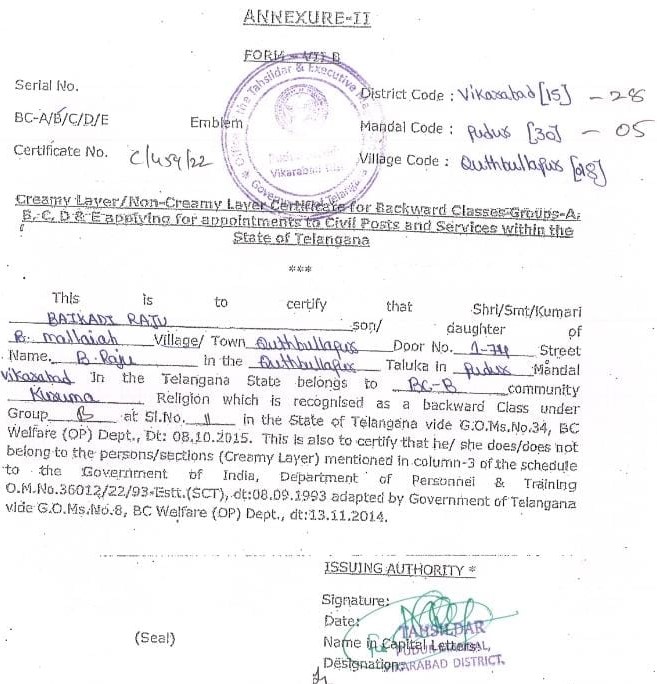 ANNEXURE-II
FORM - VII B
Serial No.
District Code : Vikarabad [15] - 28
BC-A/B/C/D/E Emblem Mandal Code : Pudur [30] - 05
Certificate No. C/459/22 Village Code : Quthbullapur [98]
Office of the Tahsildar & Executive
Vikarabad
Government of Telangana
Creamy Layer/Non-Creamy Layer Certificate for Backward Classes Groups-A,
B, C, D & E applying for appointments to Civil Posts and Services within the
State of Telangana
***
This is to certify that Shri/Smt/Kumari
BAIKADI RAJU son/ daughter of
B. mallaiah Village/ Town Quthbullapur Door No. 1-74 Street
Name. B. Raju in the Quthbullapur Taluka in Pudur Mandal
Vikarabad In the Telangana State belongs to BC-B community
Kuruma Religion which is recognised as a backward Class under
Group B at Sl.No. 11 in the State of Telangana vide G.O.Ms.No.34, BC
Welfare (OP) Dept., Dt: 08.10.2015. This is also to certify that he/ she does/does not
belong to the persons/sections (Creamy Layer) mentioned in column-3 of the schedule
to the Government of India, Department of Personnel & Training
O.M.No.36012/22/93-Estt.(SCT), dt:08.09.1993 adapted by Government of Telangana
vide G.O.Ms.No.8, BC Welfare (OP) Dept., dt:13.11.2014.
ISSUING AUTHORITY *
Signature:
Date:
TAHSILDAR
Name in Capital Letters:
PUDUR MANDAL,
(Seal)
Designation:
VIKARABAD DISTRICT.